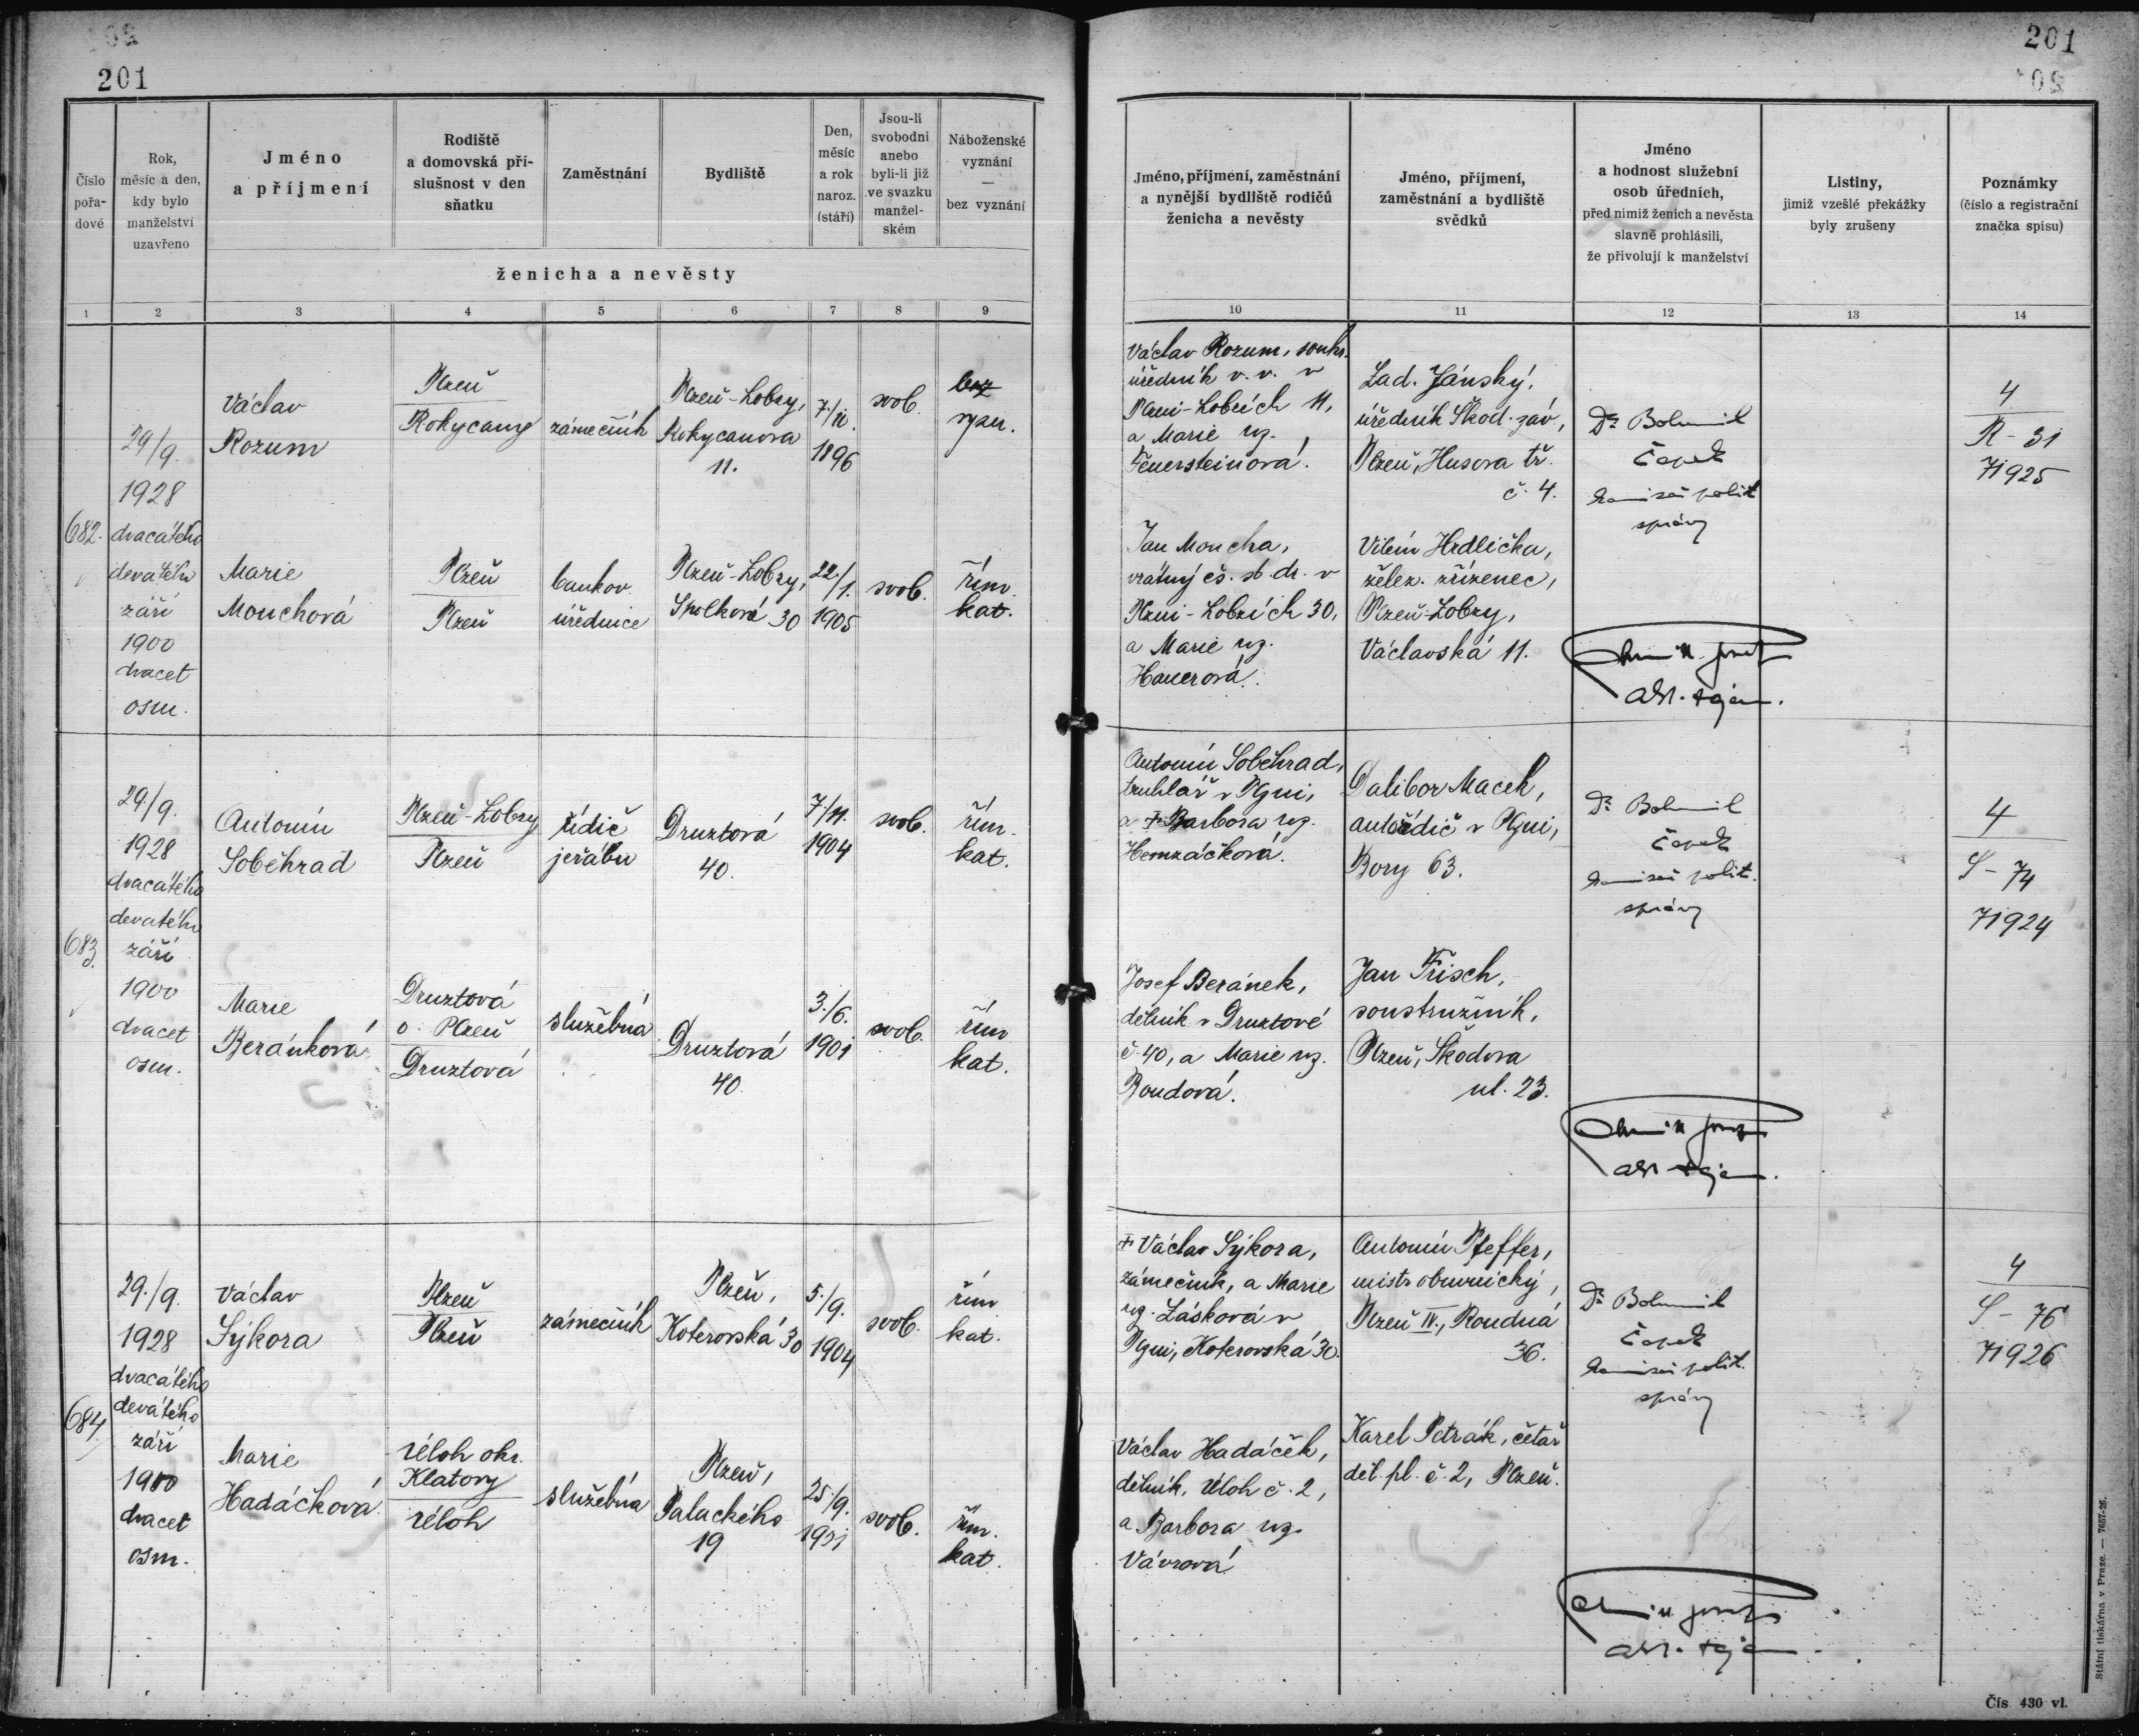 201
201
Číslo pořa-dové
Rok, měsíc a den, kdy bylo manželství uzavřeno
Jméno a příjmení
Rodiště a domovská pří-slušnost v den sňatku
Zaměstnání
Bydliště
Den, měsíc a rok naroz. (stáří)
Jsou-li svobodni anebo byli-li již ve svazku manžel-ském
Náboženské vyznání — bez vyznání
ženicha a nevěsty
Jméno, příjmení, zaměstnání a nynější bydliště rodičů ženicha a nevěsty
Jméno, příjmení, zaměstnání a bydliště svědků
Jméno a hodnost služební osob úředních, před nimiž ženich a nevěsta slavně prohlásili, že přivolují k manželství
Listiny, jimiž vzešlé překážky byly zrušeny
Poznámky (číslo a registrační značka spisu)
1 2 3 4 5 6 7 8 9 10 11 12 13 14
682.
29/9.
1928
dvacátého
devátého
září
1900
dvacet
osm.
Václav
Rozum
Plzeň
Rokycany
zámečník
Plzeň-Lobzy,
Rokycanova
11.
7/11.
1896
svob.
bez
vyzn.
Václav Rozum, soukr.
úředník v. v. v
Plzni-Lobzích 11,
a Marie roz.
Feuersteinová.
Lad. Jánský,
úředník Škod. záv.,
Plzeň, Husova tř.
č. 4.
Dr. Bohumil
Čapek
komisař polit.
správy
4
R-31
71925
Marie
Mouchová
Plzeň
Plzeň
bankov.
úřednice
Plzeň-Lobzy,
Spolková 30
22/1.
1905
svob.
řím.
kat.
Jan Moucha,
vrátný čs. st. dr. v
Plzni-Lobzích 30,
a Marie roz.
Hauerová.
Vilém Hrdlička,
želez. zřízenec,
Plzeň-Lobzy,
Václavská 11.
683.
29./9.
1928
dvacátého
devátého
září
1900
dvacet
osm.
Antonín
Soběhrad
Plzeň-Lobzy
Plzeň
řídič
jeřábu
Druztová
40.
7/11.
1904
svob.
řím.
kat.
Antonín Soběhrad,
truhlář v Plzni,
a + Barbora roz.
Hemzáčková.
Dalibor Macek,
autořídič v Plzni,
Bory 63.
Dr. Bohumil
Čapek
komisař polit.
správy
4
S-74
71924
Marie
Beránková
Druztová
o. Plzeň
Druztová
služebná
Druztová
40.
3./6.
1901
svob.
řím
kat.
Josef Beránek,
dělník v Druztové
č. 40, a Marie roz.
Boudová.
Jan Frisch,
soustružník,
Plzeň, Škodova
ul. 23.
684.
29./9.
1928
dvacátého
devátého
září
1900
dvacet
osm.
Václav
Sýkora
Plzeň
Plzeň
zámečník
Plzeň,
Koterovská 30
5./9.
1904
svob.
řím
kat.
+ Václav Sýkora,
zámečník, a Marie
roz. Lásková v
Plzni, Koterovská 30.
Antonín Pfeffer,
mistr obuvnický,
Plzeň IV., Roudná
36.
Dr. Bohumil
Čapek
komisař polit.
správy
4
S-76
71926
Marie
Hadáčková
Úloh okr.
Klatovy
Úloh
služebná
Plzeň,
Palackého
19
25/9.
svob.
řím.
kat.
Václav Hadáček,
dělník, Úloh č. 2,
a Barbora roz.
Vávrová
Karel Petrák, četař
děl. pl. č. 2, Plzeň.
Státní tiskárna v Praze. — 7657-26.
Čís 430 vl.